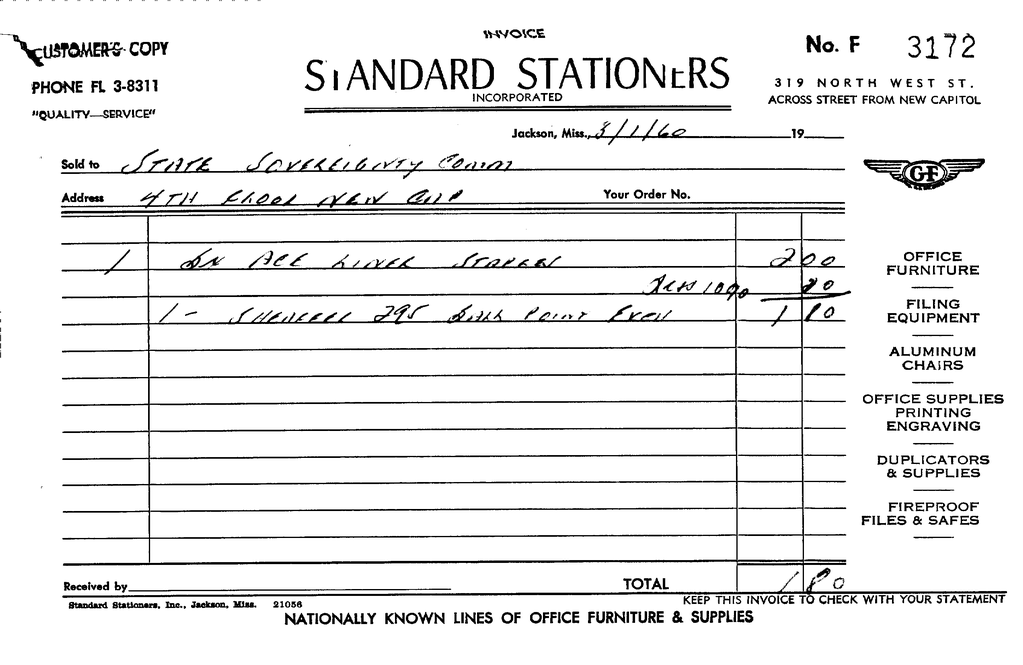 INVOICE
CUSTOMER'S COPY
No. F 3172
STANDARD STATIONERS
INCORPORATED
PHONE FL 3-8311
319 NORTH WEST ST.
"QUALITY—SERVICE"
ACROSS STREET FROM NEW CAPITOL
Jackson, Miss., 3/1/60 19
Sold to STATE SOVEREIGNTY COMM
Address 4TH FLOOR NEW CAP Your Order No.
GF
1 ACE LINER STAPLES 2 00
Less 10% 20
1 - SHEAFFER 295 BALL POINT 1 80
OFFICE
FURNITURE
FILING
EQUIPMENT
ALUMINUM
CHAIRS
OFFICE SUPPLIES
PRINTING
ENGRAVING
DUPLICATORS
& SUPPLIES
FIREPROOF
FILES & SAFES
Received by TOTAL 1 80
Standard Stationers, Inc., Jackson, Miss. 21056
KEEP THIS INVOICE TO CHECK WITH YOUR STATEMENT
NATIONALLY KNOWN LINES OF OFFICE FURNITURE & SUPPLIES